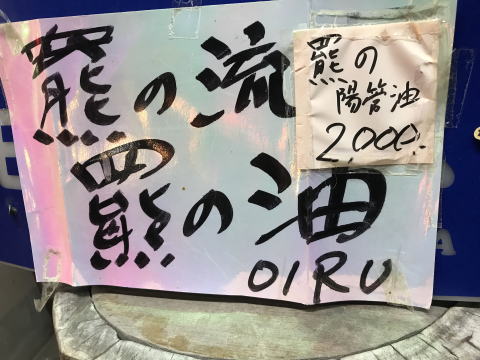 羆の流
羆の油
OIRU
羆の
陽管油
2,000.-